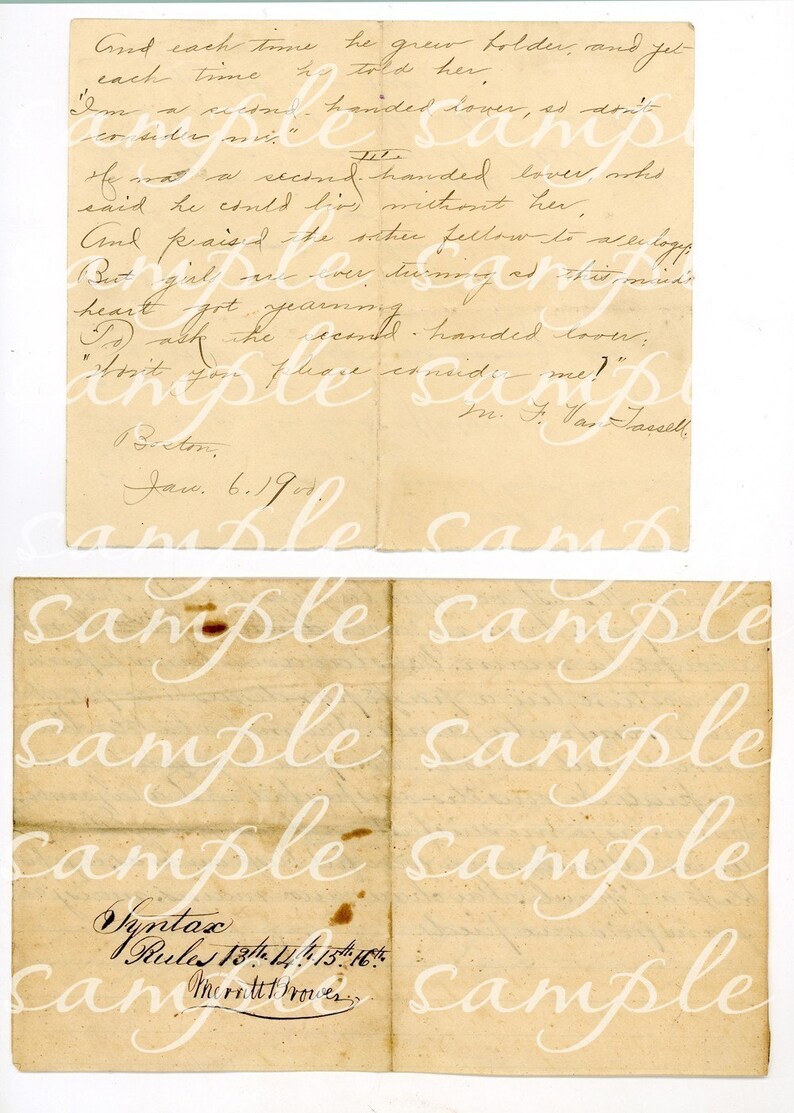 And each time he grew bolder, and yet
each time he told her,
"I'm a second-handed lover, so don't
consider me."
III.
He was a second-handed lover, who
said he could live without her,
And praised the other fellow to a eulogy;
But girls are ever turning so this maid's
heart got yearning
To ask the second-handed lover,
"Won't you please consider me?"
M. F. Van Tassell.
Boston,
Jan. 6. 1900.
Syntax
Rules 13th. 14th. 15th. 16th.
Merritt Brower
sample sample
sample sample
sample sample
sample sample
sample sample
sample sample
sample sample
sample sample
sample sample